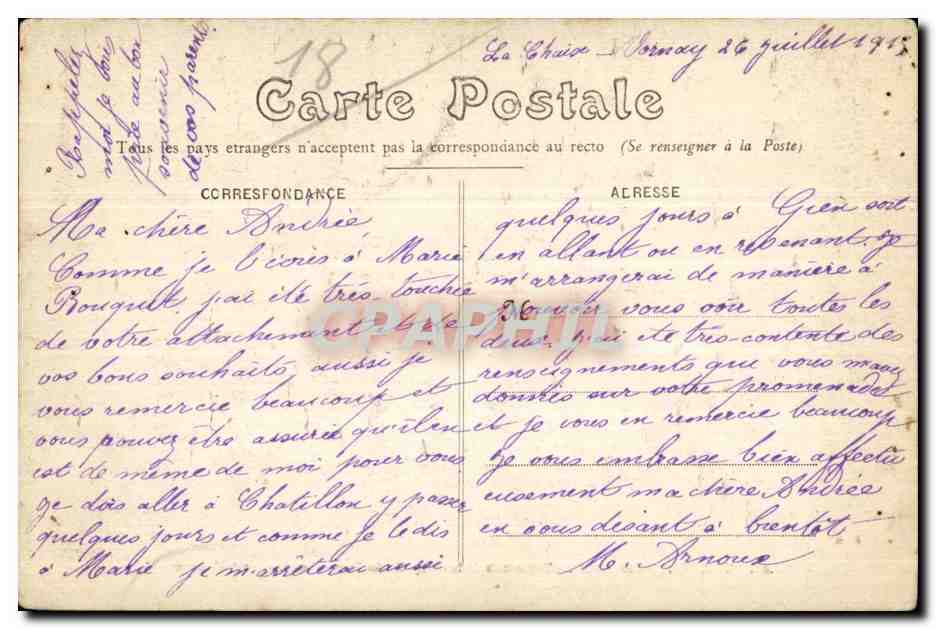 Rappelez
moi je vous
prie au bon
souvenir
de vos parents
18
La Chaix - Jornay 26 juillet 191
Carte Postale
Tous les pays etrangers n'acceptent pas la correspondance au recto (Se renseigner à la Poste)
CORRESPONDANCE
Ma chère Andrée,
Comme je l'écris à Marie
Bouquet j'ai été très touchée
de votre attachement et de
vos bons souhaits aussi je
vous remercie beaucoup et
vous pouvez être assurée qu'il en
est de même de moi pour vous
je dois aller à Chatillon y passer
quelques jours et comme je le dis
à Marie je m'arrêterai aussi
ADRESSE
quelques jours à Gien soit
en allant ou en revenant. je
m'arrangerai de manière à
pouvoir vous voir toutes les
deux, j'ai été très contente des
renseignements que vous m'avez
donnés sur votre promenade
et je vous en remercie beaucoup
je vous embrasse bien affectu
eusement ma chère Andrée
en vous disant à bientôt
M. Arnoux
36
CPAPHIL